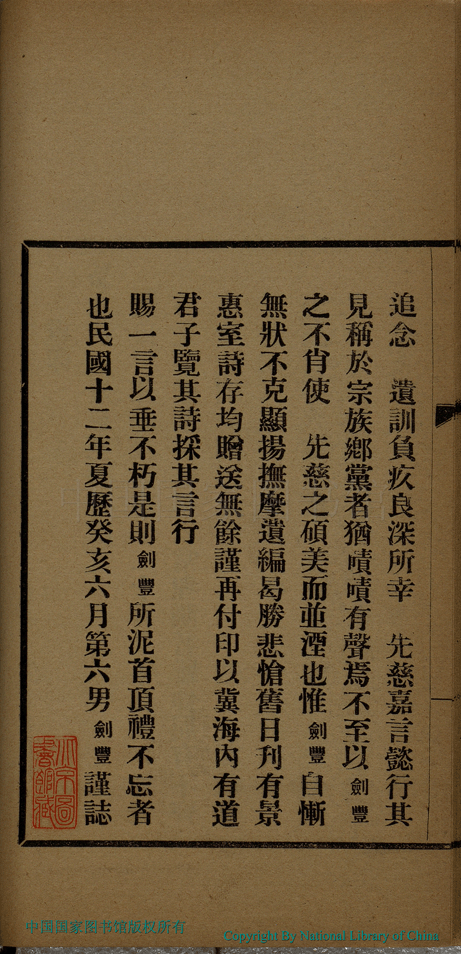 追念　遺訓負疚良深所幸　先慈嘉言懿行其
見稱於宗族鄉黨者猶嘖嘖有聲焉不至以劍豐
之不肖使　先慈之碩美而並湮也惟劍豐自慚
無狀不克顯揚撫摩遺編曷勝悲愴舊日刋有景
惠室詩存均贈送無餘謹再付印以冀海內有道
君子覽其詩採其言行
賜一言以垂不朽是則劍豐所泥首頂禮不忘者
也民國十二年夏歷癸亥六月第六男劍豐謹誌
中国国家图书馆版权所有
Copyright By National Library of China